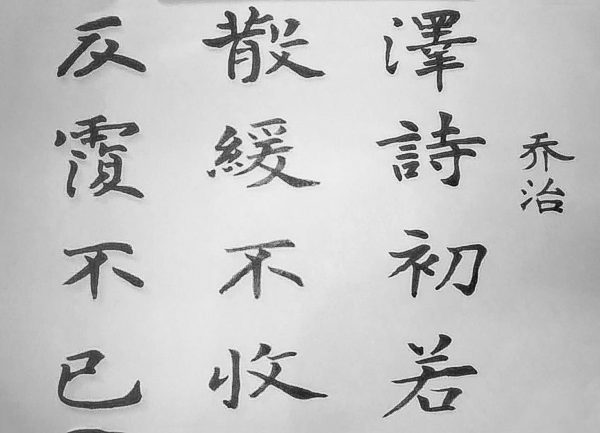 乔治
澤詩初若
散緩不收
反覆不已